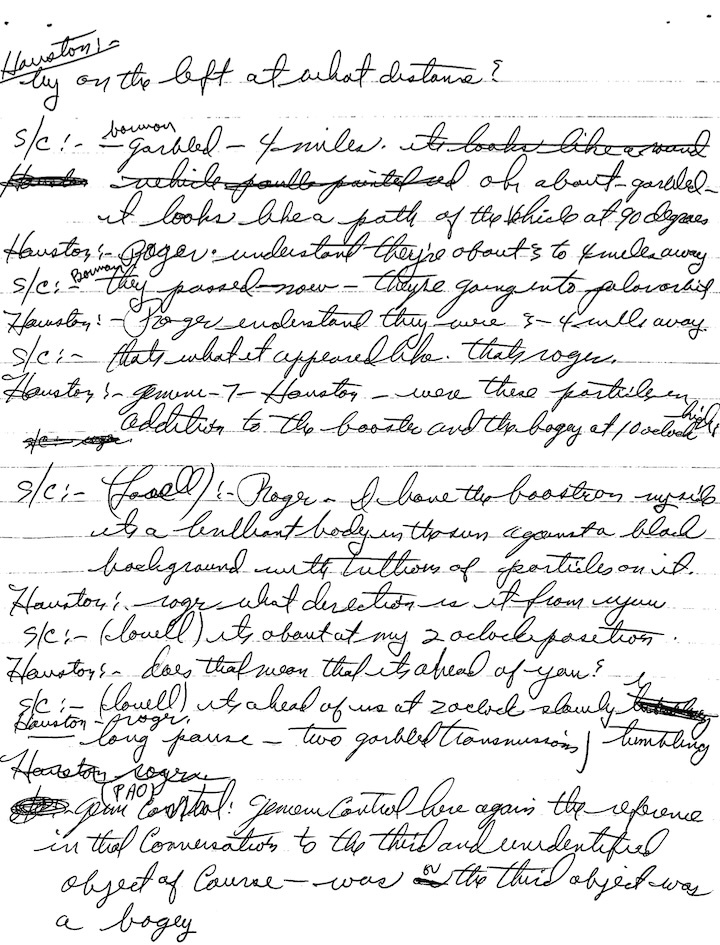 Houston:-
by on the left at what distance?
S/C:- borman garbled - 4 miles. its looks like a
vehicle painted oh about - garbled -
it looks like a path of the vehicle at 90 degrees
Houston:- Roger. understand they're about 3 to 4 miles away
S/C:- Borman they passed - now - they're going into polar orbit
Houston:- Roger understand they were 3 - 4 miles away.
S/C:- thats what it appeared like. thats roger.
Houston:- gemini - 7 - Houston - were these particles in
addition to the booster and the bogey at 10 oclock high?
S/C:- (Lovell):- Roger - I have the booster on my side
its a brilliant body in the sun against a black
background with trillions of particles on it.
Houston:. roger what direction is it from you
S/C:- (lovell) its about at my 2 oclock position.
Houston:- does that mean that its ahead of you?
S/C:- (lovell) its ahead of us at 2 oclock slowly
tumbling
Houston - roger.
long pause - two garbled transmissions
Houston roger
(PAO)
Gem Control: Gemini Control here again the reference
in that conversation to the third and unidentified
object of course - was or the third object was
a bogey